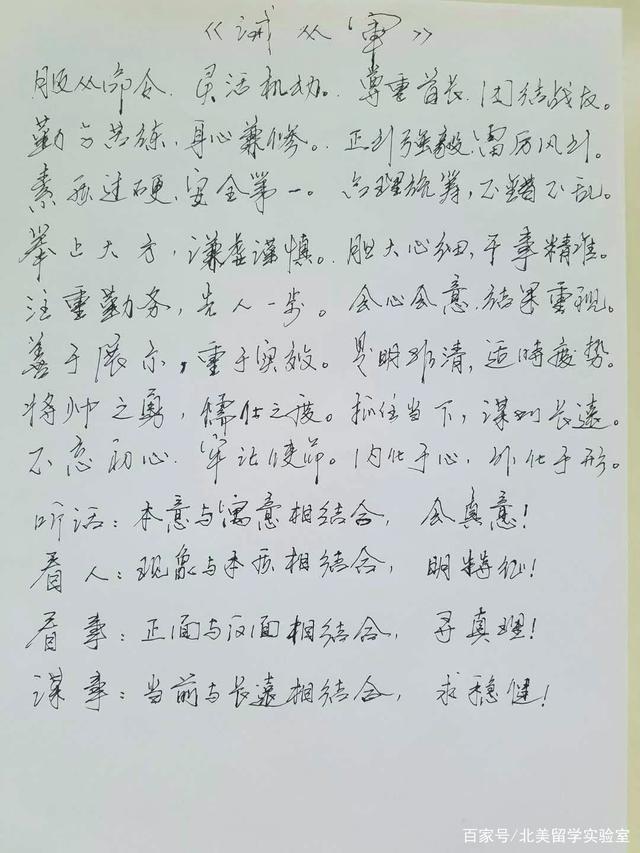 《诫从军》
服从命令.灵活机动。尊重首长.团结战友。
勤学苦练,身心兼修。正到强毅.雷厉风行。
素质过硬.安全第一。合理统筹,不错不乱。
举止大方,谦虚谨慎。胆大心细,干事精准。
注重勤务,先人一步。会心会意.结果重视。
善于展示,重于实效。是明非清,适時度势。
将帅之勇,儒仕之度。抓住当下,谋划长遠。
不忘初心.牢记使命。内化于心,外化于形。
听话:本意与寓意相结合,会真意!
看人:现象与本质相结合,明特征!
看事:正面与反面相结合,寻真理!
谋事:当前与长遠相结合,求稳健!
百家号/北美留学实验室